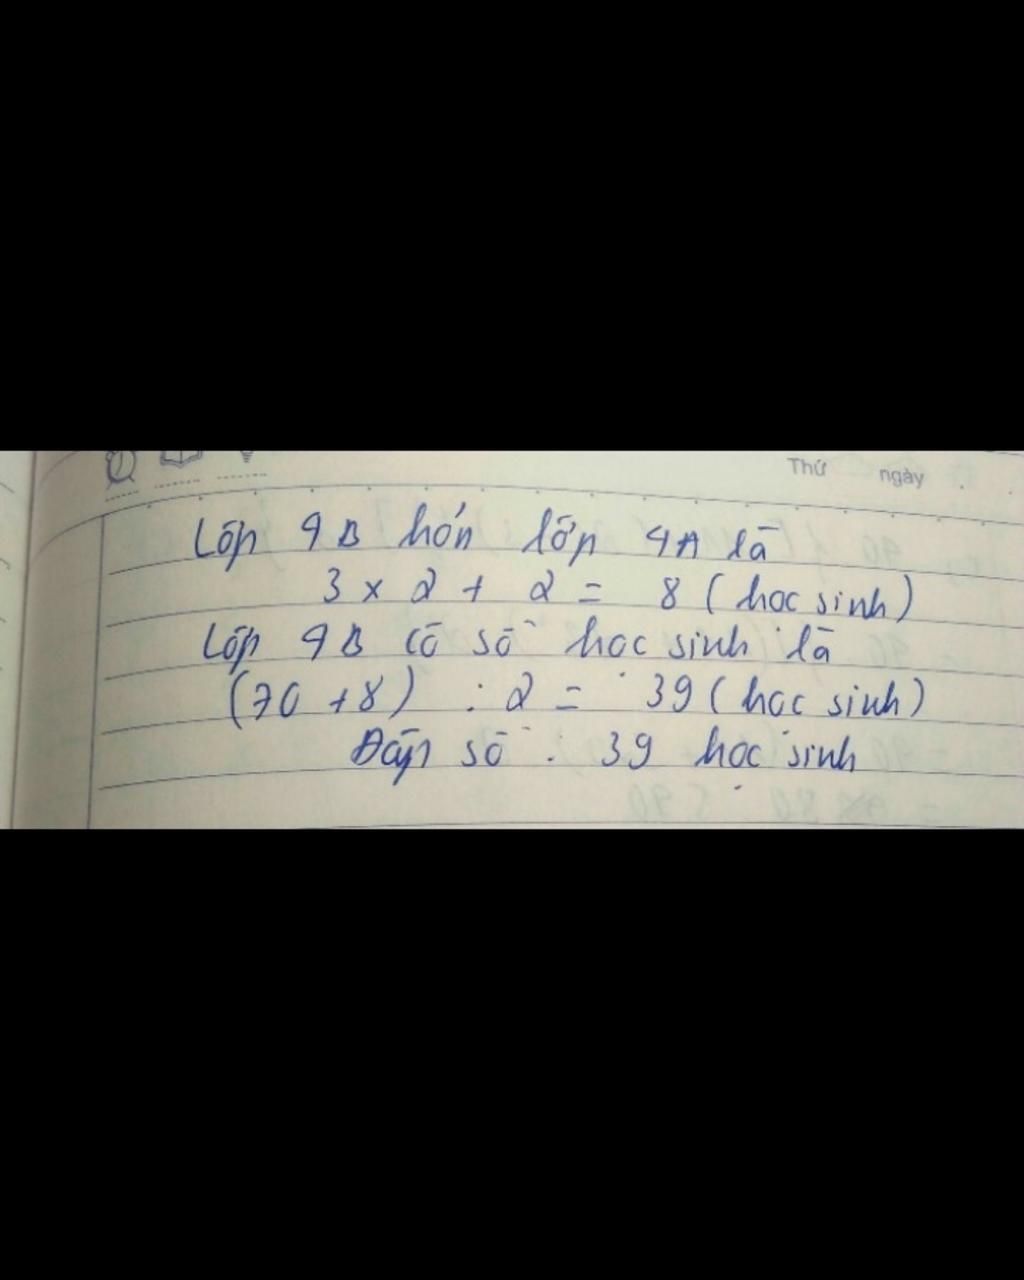 Thứ ngày
Lớp 4B hơn lớp 4A là
3 x 2 + 2 = 8 (học sinh)
Lớp 4B có số học sinh là
(70 + 8) : 2 = 39 (học sinh)
Đáp số : 39 học sinh